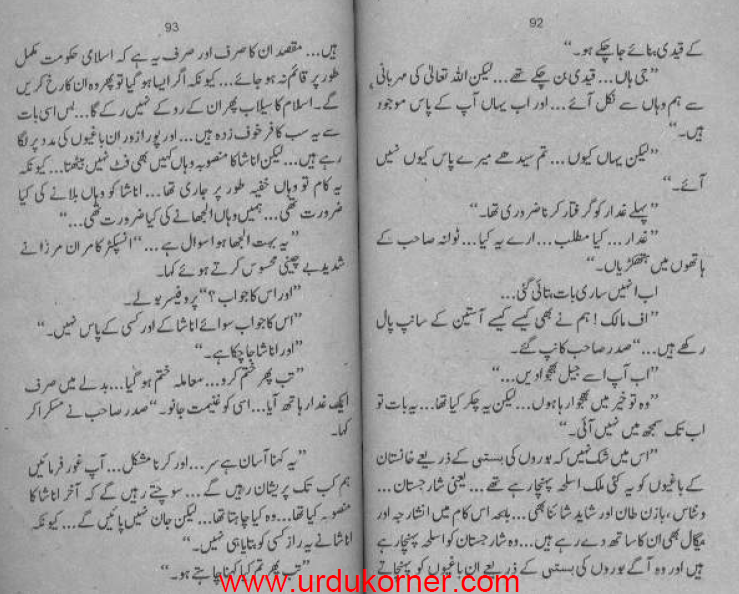 92
کے قیدی بنائے جا چکے ہو۔“
”جی ہاں... قیدی بن چکے تھے... لیکن اللہ تعالیٰ کی مہربانی
سے ہم وہاں سے نکل آئے... اور اب یہاں آپ کے پاس موجود
ہیں۔“
”لیکن یہاں کیوں... تم سیدھے میرے پاس کیوں نہیں
آئے۔“
”پہلے غدار کو گرفتار کرنا ضروری تھا۔“
”غدار... کیا مطلب... ارے یہ کیا... ٹوانہ صاحب کے
ہاتھوں میں ہتھکڑیاں۔“
اب انہیں ساری بات بتائی گئی...
”اف مالک! ہم نے بھی کیسے کیسے آستین کے سانپ پال
رکھے ہیں...“ صدر صاحب کانپ گئے۔
”اب آپ اسے جیل بھجوا دیں...“
”وہ تو خیر میں بھجوا رہا ہوں... لیکن یہ چکر کیا تھا... یہ بات تو
اب تک سمجھ میں نہیں آئی۔“
”اس میں شک نہیں کہ بوروں کی بستی کے ذریعے خانستان
کے باغیوں کو یہ کئی ملک اسلحہ پہنچا رہے تھے... یعنی شارجستان...
ونٹاس، بازن طان اور شاید شائنا بھی... بلکہ اس کام میں انشارجہ اور
بیگال بھی ان کا ساتھ دے رہے ہیں... وہ شارجستان کو اسلحہ پہنچا رہے
ہیں اور وہ آگے بوروں کی بستی کے ذریعے ان باغیوں کو پہنچاتے
93
ہیں... مقصد ان کا صرف اور صرف یہ ہے کہ اسلامی حکومت مکمل
طور پر قائم نہ ہو جائے... کیونکہ اگر ایسا ہو گیا تو پھر وہ ان کا رخ کریں
گے۔ اسلام کا سیلاب پھر ان کے روکے نہیں رکے گا... بس اسی بات
سے یہ سب کافر خوف زدہ ہیں... اور پورا زور ان باغیوں کی مدد پر لگا
رہے ہیں... لیکن اناشا کا منصوبہ وہاں کہیں بھی فٹ نہیں بیٹھتا... کیونکہ
یہ کام تو وہاں خفیہ طور پر جاری تھا... اناشا کو وہاں بلانے کی کیا
ضرورت تھی... ہمیں وہاں الجھانے کی کیا ضرورت تھی...“
”یہ بہت الجھا ہوا سوال ہے...“ انسپکٹر کامران مرزا نے
شدید بے چینی محسوس کرتے ہوئے کہا۔
”اور اس کا جواب؟“ پروفیسر بولے۔
”اس کا جواب سوائے اناشا کے اور کسی کے پاس نہیں۔“
”اور اناشا جا چکا ہے۔“
”تب پھر ختم کرو... معاملہ ختم ہو گیا... بدلے میں صرف
ایک غدار ہاتھ آیا... اسی کو غنیمت جانو۔“ صدر صاحب نے مسکرا کر
کہا۔
”یہ کہنا آسان ہے سر... اور کرنا مشکل... آپ غور فرمائیں
ہم کب تک پریشان رہیں گے... سوچتے رہیں گے کہ آخر اناشا کا
منصوبہ کیا تھا... وہ کیا چاہتا تھا... لیکن جان نہیں پائیں گے... کیونکہ
اناشا نے یہ راز کسی کو بتایا ہی نہیں۔“
”تب پھر تم کیا کہنا چاہتے ہو۔“
www.urdukorner.com